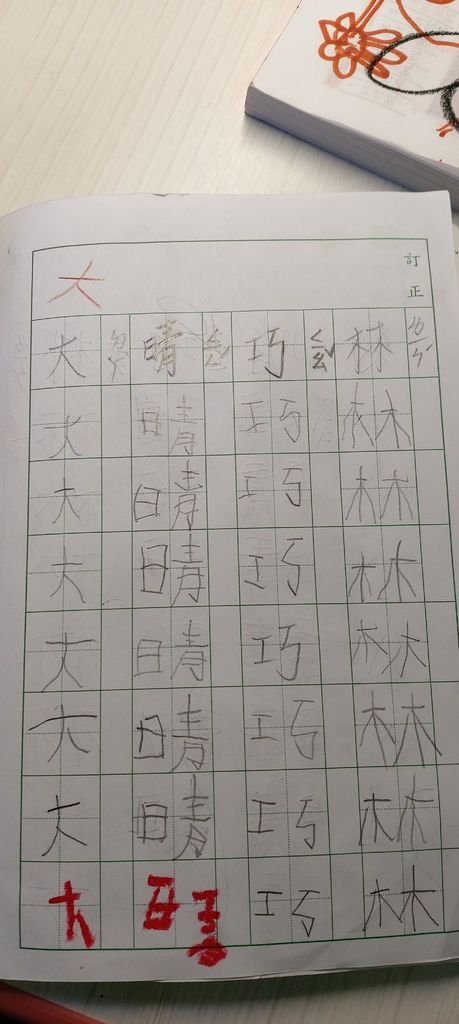 訂正
大
大 晴 巧 林
大 晴 巧 林
大 晴 巧 林
大 晴 巧 林
大 晴 巧 林
大 晴 巧 林
大 晴 巧 林
大 巧 林